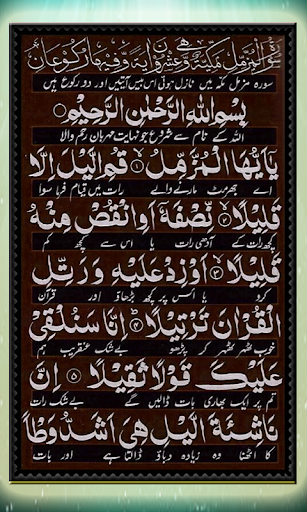 سُوْرَةُ الْمُزَّمِّلِ مَكِّيَّةٌ وَّهِيَ عِشْرُوْنَ اٰيَةً وَّفِيْهَا رُكُوْعَانِ
سورہ مزمل مکہ میں نازل ہوئی اس میں بیس آیتیں اور دو رکوع ہیں
بِسْمِ اللهِ الرَّحْمٰنِ الرَّحِيْمِ
اللہ کے نام سے شروع جو نہایت مہربان رحم والا
يٰۤاَيُّهَا الْمُزَّمِّلُ ۙ﴿۱﴾ قُمِ الَّيْلَ اِلَّا
اے جھرمٹ مارنے والے رات میں قیام فرما سوا
قَلِيْلًا ۙ﴿۲﴾ نِّصْفَهٗۤ اَوِ انْقُصْ مِنْهُ
کچھ رات کے آدھی رات یا اس سے کچھ کم
قَلِيْلًا ۙ﴿۳﴾ اَوْ زِدْ عَلَيْهِ وَرَتِّلِ
کرو یا اس پر کچھ بڑھاؤ اور قرآن
الْقُرْاٰنَ تَرْتِيْلًا ؕ﴿۴﴾ اِنَّا سَنُلْقِيْ
خوب ٹھہر ٹھہر کر پڑھو بے شک عنقریب ہم
عَلَيْكَ قَوْلًا ثَقِيْلًا ﴿۵﴾ اِنَّ
تم پر ایک بھاری بات ڈالیں گے بے شک رات
نَاشِئَةَ الَّيْلِ هِيَ اَشَدُّ وَطْاً
کا اٹھنا وہ زیادہ دباؤ ڈالتا ہے اور بات